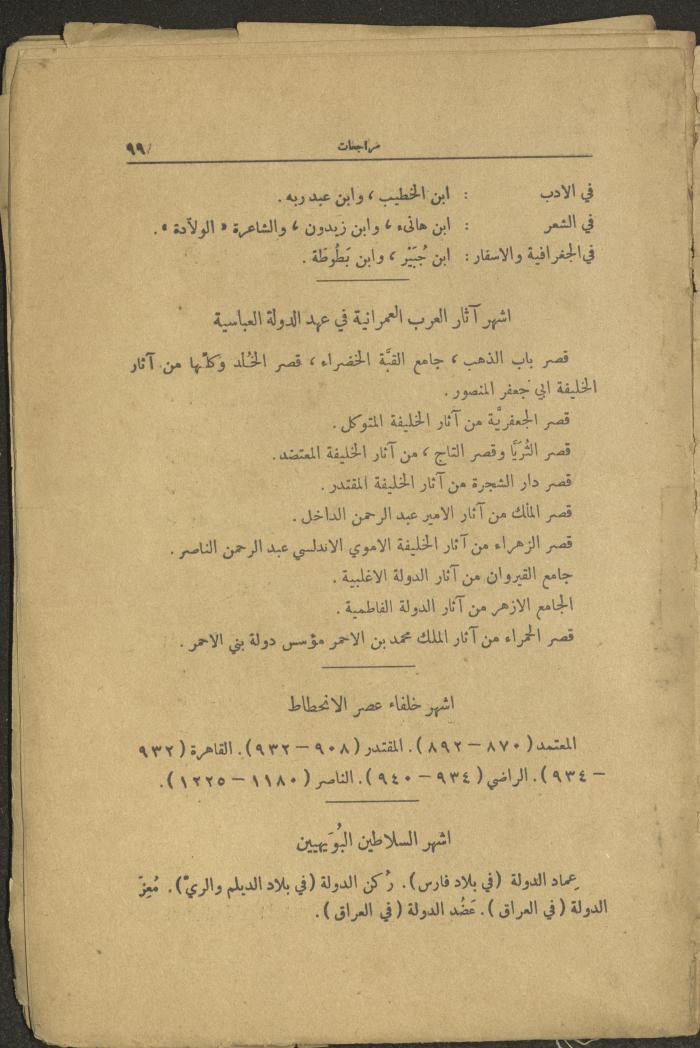 مراجعات ٩٩
في الادب : ابن الخطيب ، وابن عبد ربه .
في الشعر : ابن هانىء ، وابن زيدون ، والشاعرة « الولاَّدة » .
في الجغرافية والاسفار : ابن جُبَيْر ، وابن بَطُوطَة .
اشهر آثار العرب العمرانية في عهد الدولة العباسية
قصر باب الذهب ، جامع القبَّة الخضراء ، قصر الخُلد وكلّها من آثار
الخليفة ابي جعفر المنصور .
قصر الجعفريَّة من آثار الخليفة المتوكل .
قصر الثُّرَيَّا وقصر التاج ، من آثار الخليفة المعتضد .
قصر دار الشجرة من آثار الخليفة المقتدر .
قصر الملك من آثار الامير عبد الرحمن الداخل .
قصر الزهراء من آثار الخليفة الاموي الاندلسي عبد الرحمن الناصر .
جامع القيروان من آثار الدولة الاغلبية .
الجامع الازهر من آثار الدولة الفاطمية .
قصر الحمراء من آثار الملك محمد بن الاحمر مؤسس دولة بني الاحمر .
اشهر خلفاء عصر الانحطاط
المعتمد ( ٨٧٠ – ٨٩٢ ) . المقتدر ( ٩٠٨ – ٩٣٢ ) . القاهرة ( ٩٣٢
– ٩٣٤ ) . الراضي ( ٩٣٤ – ٩٤٠ ) . الناصر ( ١١٨٠ – ١٢٢٥ ) .
اشهر السلاطين البُوَيهيين
عِماد الدولة (في بلاد فارس) . رُكن الدولة (في بلاد الديلم والريّ) . مُعِزّ
الدولة ( في العراق ) . عَضُد الدولة ( في العراق ) .